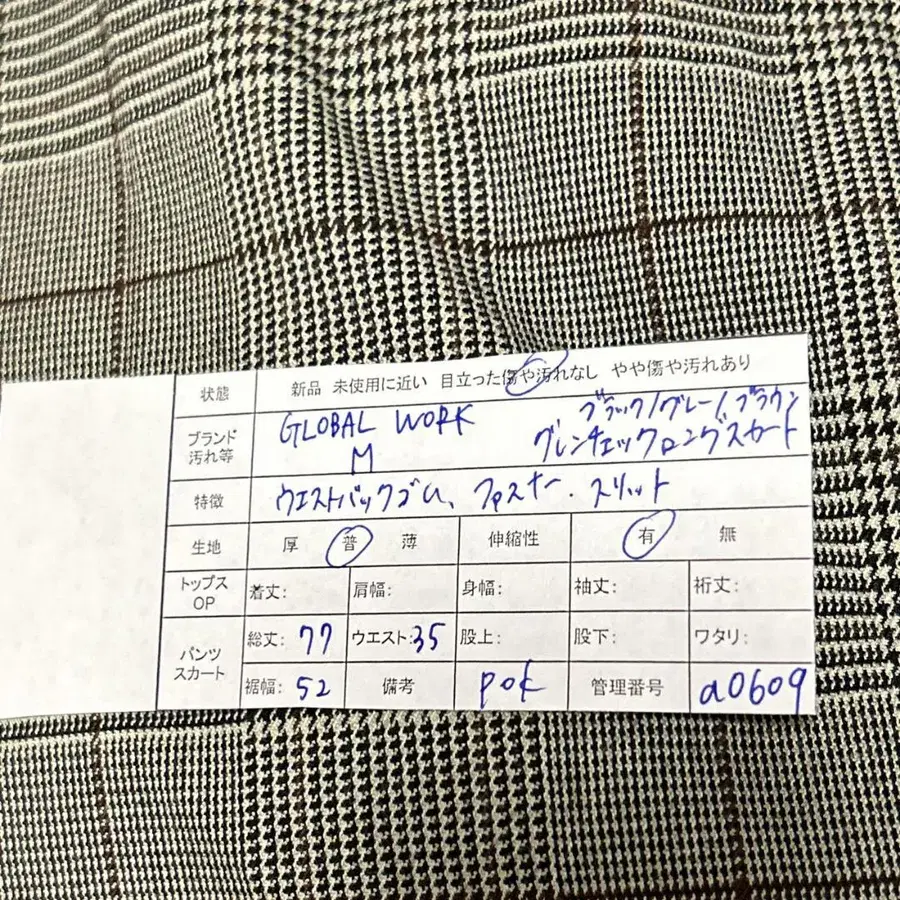 状態 新品 未使用に近い 目立った傷や汚れなし やや傷や汚れあり
ブランド 汚れ等 GLOBAL WORK M ブラック/グレー/ブラウン グレンチェックロングスカート
特徴 ウエストバックゴム、ファスナー、スリット
生地 厚 普 薄 伸縮性 有 無
トップス OP 着丈: 肩幅: 身幅: 袖丈: 裄丈:
パンツ スカート 総丈: 77 ウエスト: 35 股上: 股下: ワタリ:
裾幅: 52 備考 pok 管理番号 a0609